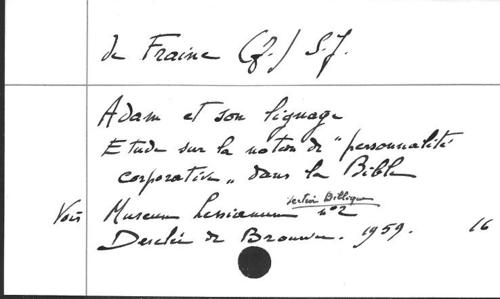 de Fraine (J.) S.J.
Adam et son lignage
Etude sur la notion de "personnalité
corporative" dans la Bible
Voir Museum Lessianum section Biblique n° 2
Desclée de Brouwer. 1959. 16